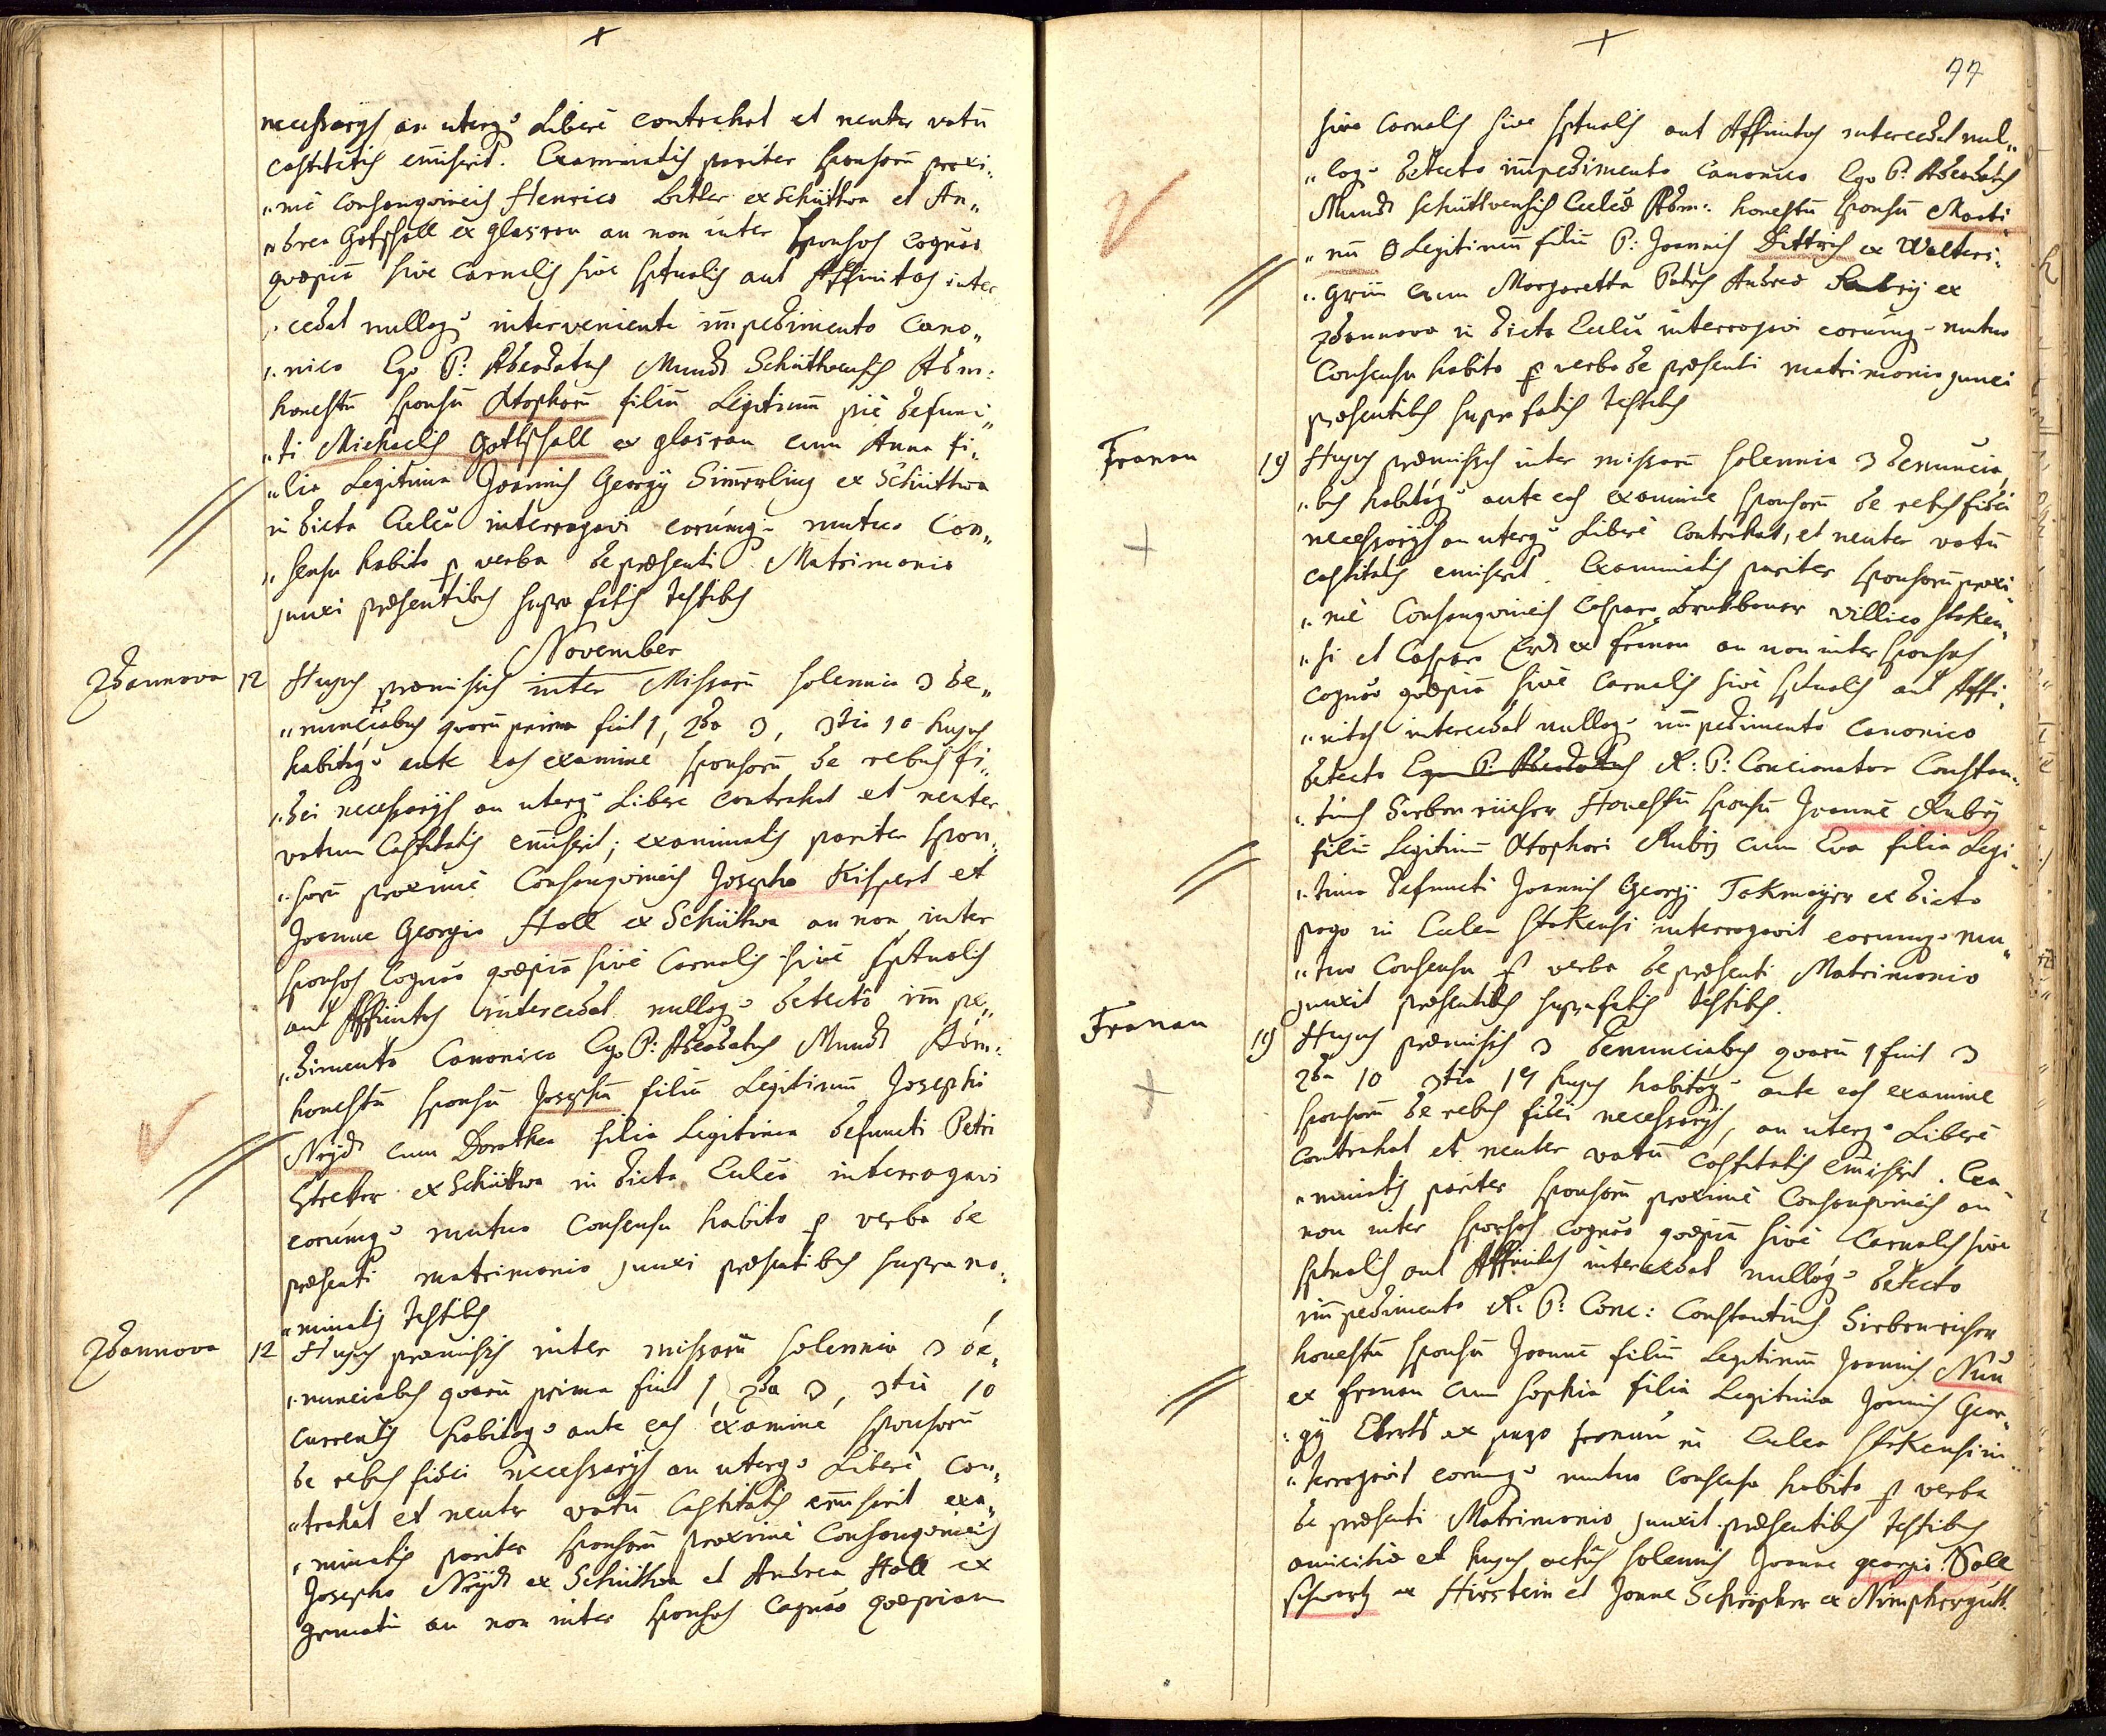 necessarijs an uterq. Liberè contrahat et neuter votũ
castitatis em̃iserit. Examinatis pariter sponsorũ proxi„
„mè Consangvineis Henrico Bitter ex Schüttwa et An„
„drea Gottschall ex Glasrau an non inter sponsos Cognãõ
qvæpiã sive Carnalis sive sp̃tualis aut Affinitas inter
„cedat nullaq. interveniente im̃pedimento Cano„
„nico Ego P: Adeodatus Mundt Schüttwensis Adm:
honestũ sponsũ Xtophorũ filiũ Legitimũ piè defunc„
„ti Michaelis Gottschall ex Glasrau cum Anna fi„
„lia Legitima Joannis Georgij Sim̃erling ex Schüttwa
in dicta Ecclesia interrogavi eorumq. mutuo Con„
„sensu habito p verba de præsenti Matrimonio
junxi præsentibus supra fatis testibus
November
Zdannova 12 Hujus præmissis inter Missarũ solennia 3 de„
„nunciãõbus qvarũ prima fuit 1, 2da 3, 3tia 10 hujus
habitoq. ante eas examine sponsorũ de rebus fi„
„dei necessarijs an uterq. Libere contrahat et neuter
votum Castitatis em̃iserit; examinatis pariter spon„
„sorũ proximè Consangvineis Josepho Kispert et
Joanne Georgio Holl ex Schüttwa an non inter
sponsos Cognãõ qvæpiã sivè Carnalis sivè sp̃tualis
aut Affinitas intercedat nulloq. detecto im̃pe„
„dimento Canonico Ego P: Adeodatus Mundt Adm:
honestũ sponsũ Josephũ filiũ Legitimũ Josephi
Neydt cum Dorothea filia Legitima defuncti Petri
Stretter ex Schüttwa in dicta Ecclesia interrogavi
eorumq. mutuo Consensu habito p verba de
præsenti matrimonio junxi præsentibus supra no„
„minatis testibus
Zdannova 12 Hujus præmissis inter missarũ solennia 3 de„
„nunciãõbus qvarũ prima fuit 1, 2da 3, 3tia 10
currentis habitoq. ante eas examine sponsorũ
de rebus fidei necessarijs an uterq. Liberè con„
„trahat et neuter votũ Castitatis em̃iserit exa„
„minatis pariter sponsorũ proximè Consangvineis
Josepho Neydt ex Schüttwa et Andrea Holl ex
Grmatin an non inter sponsos Cognãõ qvæpiam
77
sive Carnalis sive sp̃tualis aut Affinitas intercedat nul„
„loq. detecto im̃pedimento Canonico Ego P: Adeodatus
Mundt Schüttwensis Ecclesiæ Adm: honestũ sponsũ Marti„
„nũ Legitimũ filiũ P: Joannis Dittrich ex Walters„
„grün cum Margaretta Patris Andreæ ex
Zdannova in dicta Ecclesia interrogavi eorumq. mutuo
Consensu habito p verba de præsenti matrimonio junxi
præsentibus supra fatis testibus
Fronau 19 Hujus præmissis inter missarũ solennia 3 denunciãõ„
„bus habitoq. ante eas examine sponsorũ de rebus fidei
necessarijs an uterq. Liberè Contrahat, et neuter votũ
castitatis emiserit. Examinatis pariter sponsorũ proxi„
„mè Consangvineis Casparo Bruckbauer villico stoken„
„si et Casparo Erdt ex fronau an non inter sponsos
cognãõ qvæpiã sivè Carnalis sivè sp̃tualis aut Affi„
„nitas intercedat nulloq. im̃pedimento Canonico
detecto Ego P: Adeodatus R: P: Concionator Constan„
„tinus Siebenricher Honestũ sponsũ Joannẽ Rubij
filiũ Legitimũ Xtophori Rubij cum Eva filia Legi„
„tima defuncti Joannis Georgij Tokmayer ex dicto
pago in Eccl̃ia Stokensi interrogavit eorumq. mu„
„tuo Consensu p verba de præsenti Matrimonio
junxit præsentibus supra fatis testibus.
Fronau 19 Hujus præmissis 3 denunciãõbus qvarũ 1 fuit 3
2da 10 3tia 17 hujus habitoq. ante eas examine
sponsorũ de rebus fidei necessarijs, an uterq. Liberè
contrahat et neuter votũ castitatis em̃iserit. Exa„
„minatis pariter sponsorũ proximè Consangvineis an
non inter sponsos Cognãõ qvæpiã sivè Carnalis sive
sp̃tualis aut Affinitas intercedat nulloq. detecto
im̃pedimento R: P: Conc: Constantinus Siebenricher
honestũ sponsũ Joannẽ filiũ Legitimũ Joannis
ex fronau cum Sophia filia Legitima Joannis Geor„
„gij Eberts ex pago fronau in Eccl̃ia Stokensi in„
„terrogavit eorumq. mutuo Consensu habito p verba
de præsenti Matrimonio junxit præsentibus testibus
amicitiæ et hujus actus solennis Joanne georgio Voll
schwartz ex Hirstein et Joanne Schröpfer ex Nimphergutt.